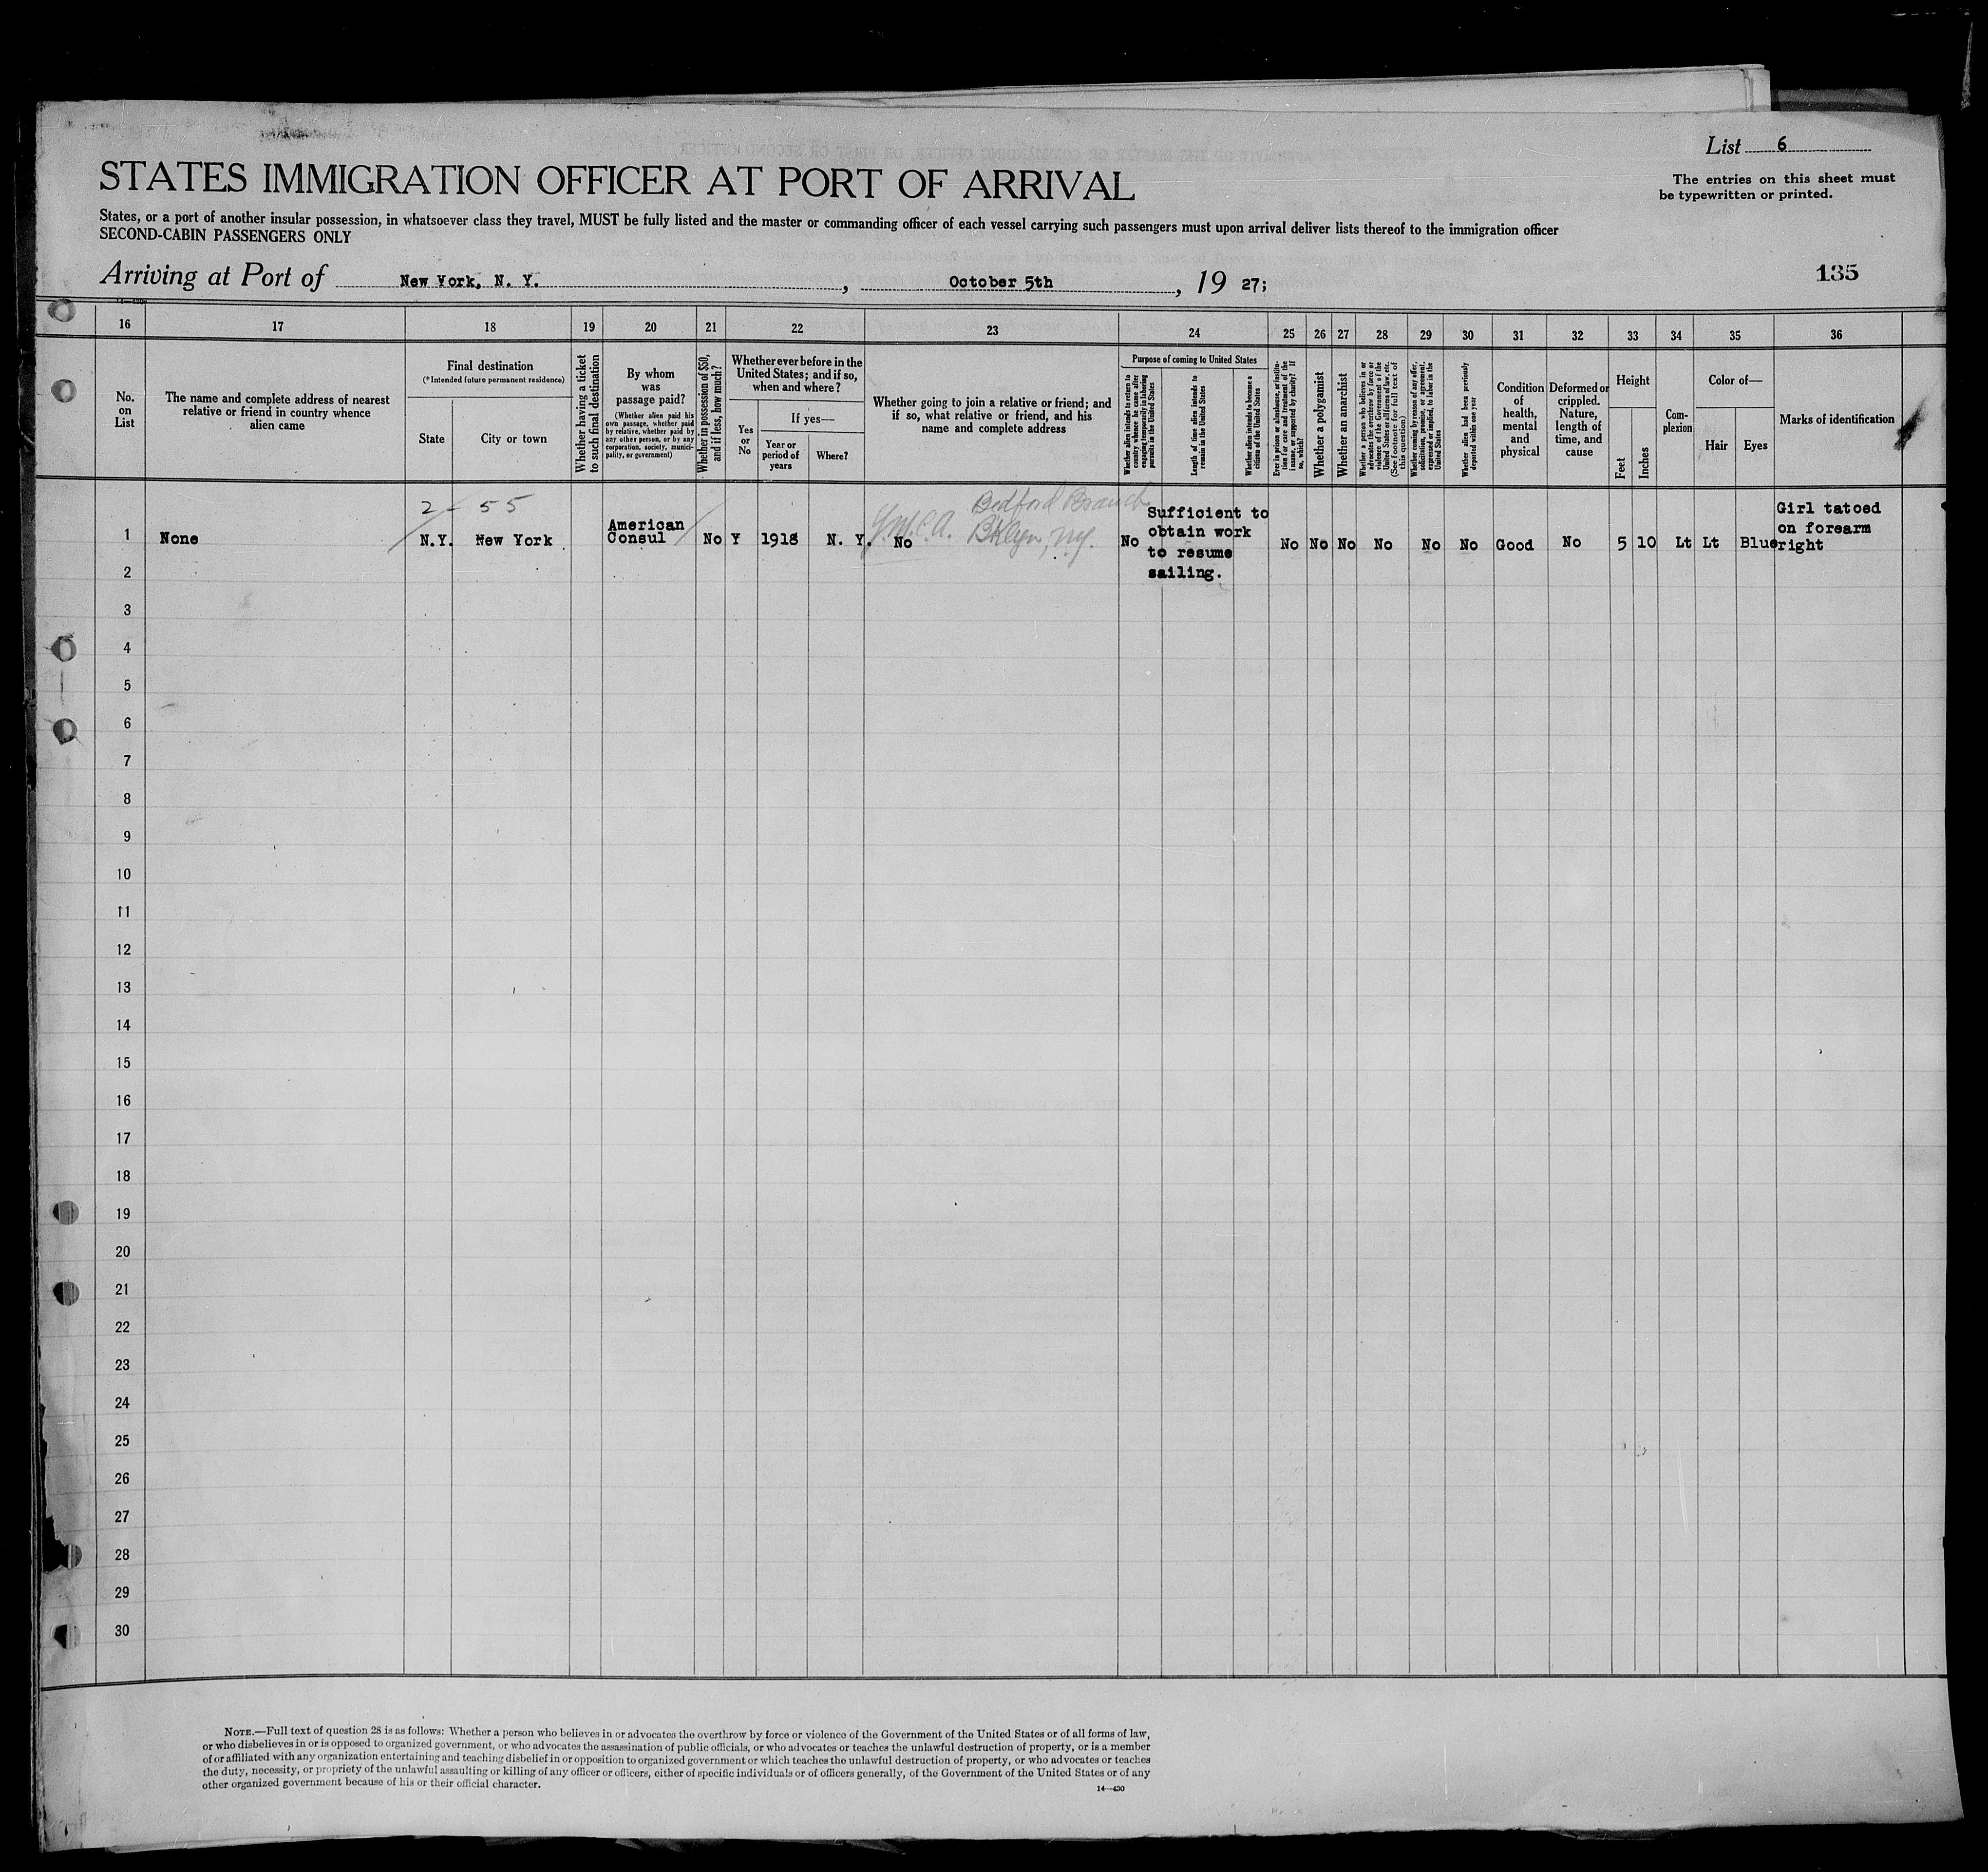 List 6
The entries on this sheet must
be typewritten or printed.
STATES IMMIGRATION OFFICER AT PORT OF ARRIVAL
States, or a port of another insular possession, in whatsoever class they travel, MUST be fully listed and the master or commanding officer of each vessel carrying such passengers must upon arrival deliver lists thereof to the immigration officer
SECOND-CABIN PASSENGERS ONLY
Arriving at Port of New York, N. Y. , October 5th , 19 27;
135
16 17 18 19 20 21 22 23 24 25 26 27 28 29 30 31 32 33 34 35 36
No.
on
List
The name and complete address of nearest
relative or friend in country whence
alien came
Final destination
(*Intended future permanent residence)
State
City or town
Whether having a ticket
to such final destination
By whom
was
passage paid?
(Whether alien paid his
own passage, whether paid
by relative, whether paid by
any other person, or by any
corporation, society, munici-
pality, or government)
Whether in possession of $50,
and if less, how much?
Whether ever before in the
United States; and if so,
when and where?
Yes
or
No
If yes—
Year or
period of
years
Where?
Whether going to join a relative or friend; and
if so, what relative or friend, and his
name and complete address
Purpose of coming to United States
Whether alien intends to return to
country whence he came after
engaging temporarily in laboring
pursuits in the United States
Length of time alien intends to
remain in the United States
Whether alien intends to become a
citizen of the United States
Ever in prison or almshouse, or institu-
tion for care and treatment of the
insane, or supported by charity? If
so, which?
Whether a polygamist
Whether an anarchist
Whether a person who believes in or
advocates the overthrow by force or
violence of the Government of the
United States or all forms of law, etc.
(See footnote for full text of
this question)
Whether coming by reason of any offer,
solicitation, promise, or agreement,
expressed or implied, to labor in the
United States
Whether alien had been previously
deported within one year
Condition
of
health,
mental
and
physical
Deformed or
crippled.
Nature,
length of
time, and
cause
Height
Feet
Inches
Com-
plexion
Color of—
Hair
Eyes
Marks of identification
2 - 55
Bedford Branch
Y.M.C.A. Bklyn, N.Y.
1 None N.Y. New York American
Consul No Y 1918 N. Y. No No Sufficient to
obtain work
to resume
sailing. No No No No No No Good No 5 10 Lt Lt Blue Girl tatoed
on forearm
right
2
3
4
5
6
7
8
9
10
11
12
13
14
15
16
17
18
19
20
21
22
23
24
25
26
27
28
29
30
NOTE.—Full text of question 28 is as follows: Whether a person who believes in or advocates the overthrow by force or violence of the Government of the United States or of all forms of law,
or who disbelieves in or is opposed to organized government, or who advocates the assassination of public officials, or who advocates or teaches the unlawful destruction of property, or is a member
of or affiliated with any organization entertaining and teaching disbelief in or opposition to organized government or which teaches the unlawful destruction of property, or who advocates or teaches
the duty, necessity, or propriety of the unlawful assaulting or killing of any officer or officers, either of specific individuals or of officers generally, of the Government of the United States or of any
other organized government because of his or their official character.
14—430